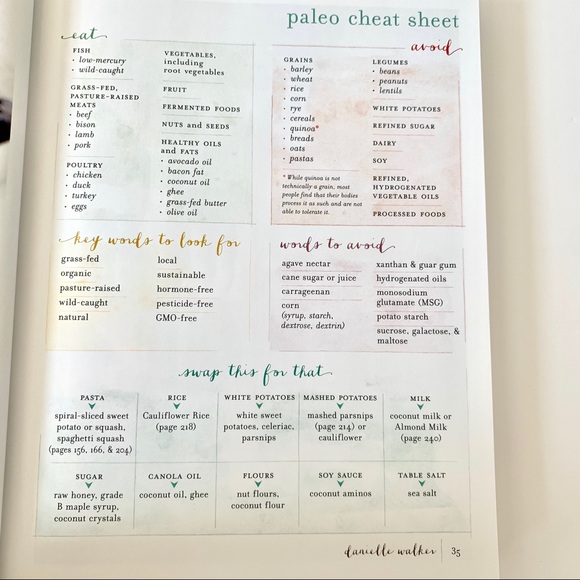 paleo cheat sheet
eat
FISH
· low-mercury
· wild-caught
GRASS-FED,
PASTURE-RAISED
MEATS
· beef
· bison
· lamb
· pork
POULTRY
· chicken
· duck
· turkey
· eggs
VEGETABLES,
including
root vegetables
FRUIT
FERMENTED FOODS
NUTS and SEEDS
HEALTHY OILS
and FATS
· avocado oil
· bacon fat
· coconut oil
· ghee
· grass-fed butter
· olive oil
avoid
GRAINS
· barley
· wheat
· rice
· corn
· rye
· cereals
· quinoa*
· breads
· oats
· pastas
* While quinoa is not
technically a grain, most
people find that their bodies
process it as such and are not
able to tolerate it.
LEGUMES
· beans
· peanuts
· lentils
WHITE POTATOES
REFINED SUGAR
DAIRY
SOY
REFINED,
HYDROGENATED
VEGETABLE OILS
PROCESSED FOODS
key words to look for
grass-fed
organic
pasture-raised
wild-caught
natural
local
sustainable
hormone-free
pesticide-free
GMO-free
words to avoid
agave nectar
cane sugar or juice
carrageenan
corn
(syrup, starch,
dextrose, dextrin)
xanthan & guar gum
hydrogenated oils
monosodium
glutamate (MSG)
potato starch
sucrose, galactose, &
maltose
swap this for that
PASTA
spiral-sliced sweet
potato or squash,
spaghetti squash
(pages 156, 166, & 204)
RICE
Cauliflower Rice
(page 218)
WHITE POTATOES
white sweet
potatoes, celeriac,
parsnips
MASHED POTATOES
mashed parsnips
(page 214) or
cauliflower
MILK
coconut milk or
Almond Milk
(page 240)
SUGAR
raw honey, grade
B maple syrup,
coconut crystals
CANOLA OIL
coconut oil, ghee
FLOURS
nut flours,
coconut flour
SOY SAUCE
coconut aminos
TABLE SALT
sea salt
danielle walker 35